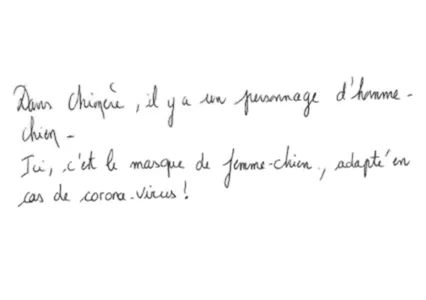 Dans Chimère, il y a un personnage d'homme-
chien -
Ici, c'est le masque de femme-chien, adapté en
cas de corona-virus !